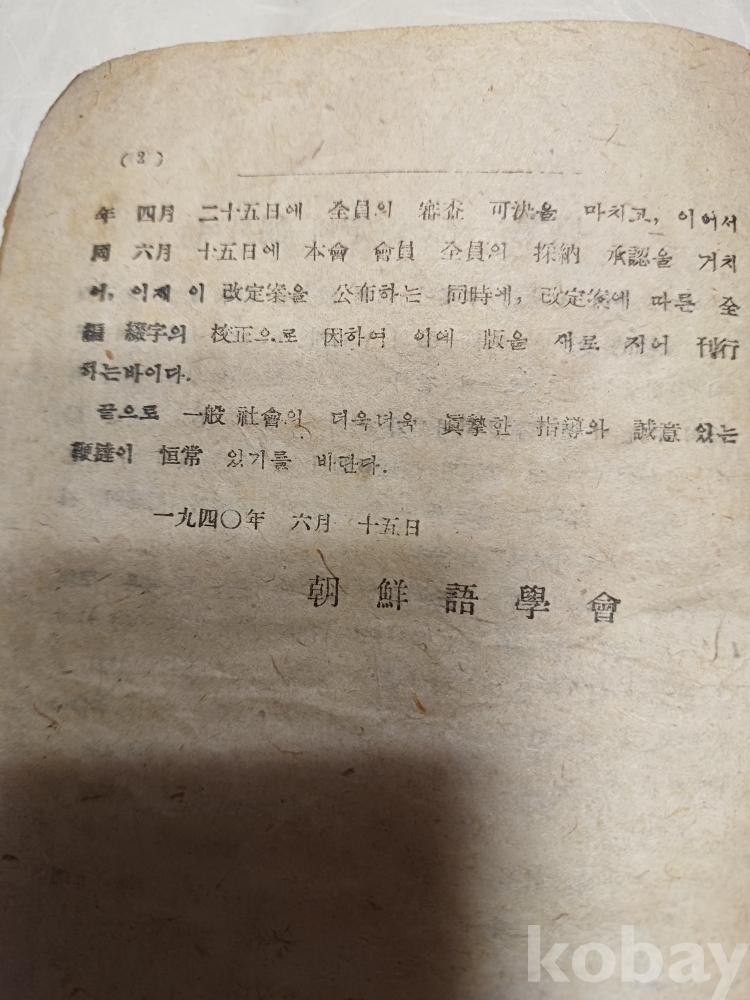 (3)
年 四月 二十五日에 全員의 審査 可決을 마치고, 이어서
同 六月 十五日에 本會 會員 全員의 採納 承認을 거치
어, 이제 이 改定案을 公布하는 同時에, 改定案에 따른 全
編 綴字의 校正으로 因하여 이에 版을 새로 지어 刊行
하는바이다.
끝으로 一般 社會의 더욱더욱 眞摯한 指導와 誠意 있는
鞭撻이 恒常 있기를 바란다.
一九四〇年 六月 十五日
朝鮮語學會
kobay